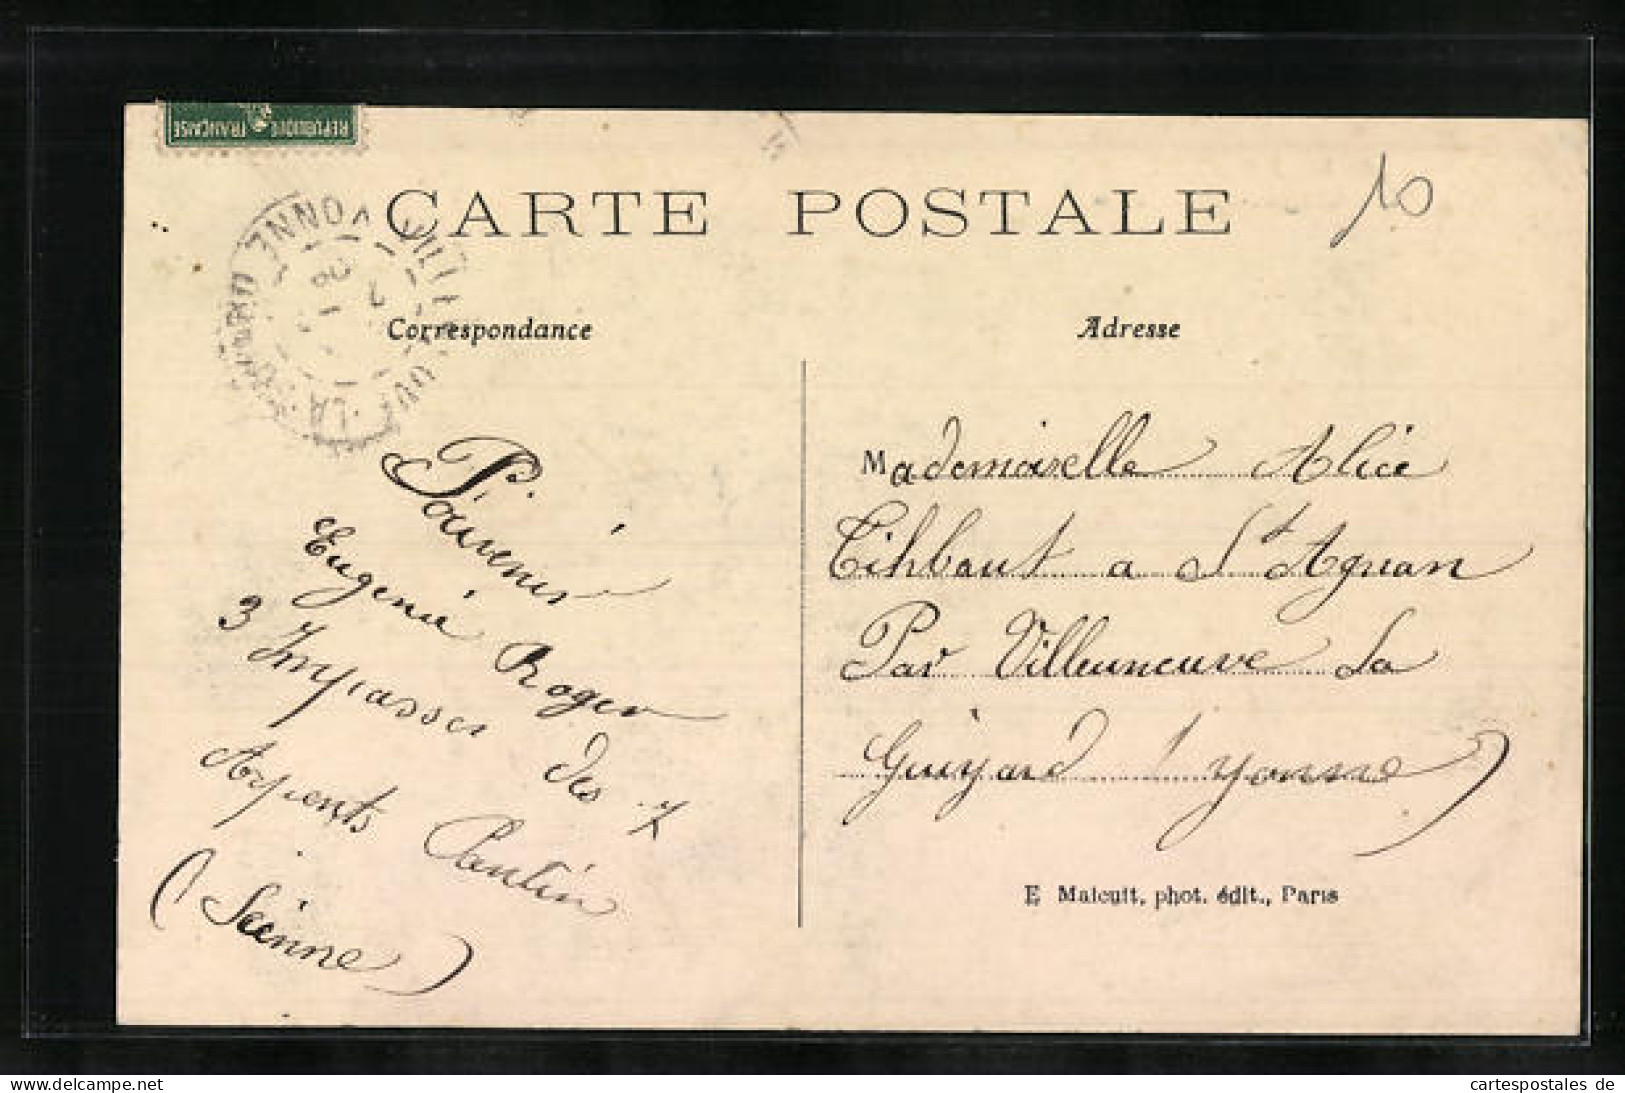 REPUBLIQUE FRANÇAISE
CARTE POSTALE
10
Correspondance
Adresse
YONNE
LA
Souvenir
Eugenié Roger
3 Impasses des 7
Arpents Pantin
(Seinne)
Mademoiselle Alice
Tihbaut a St Agnan
Par Villeuneuve La
Guiyard (yonne)
E Malcuit, phot. édit., Paris
www.cartespostales.eu
cartespostales de